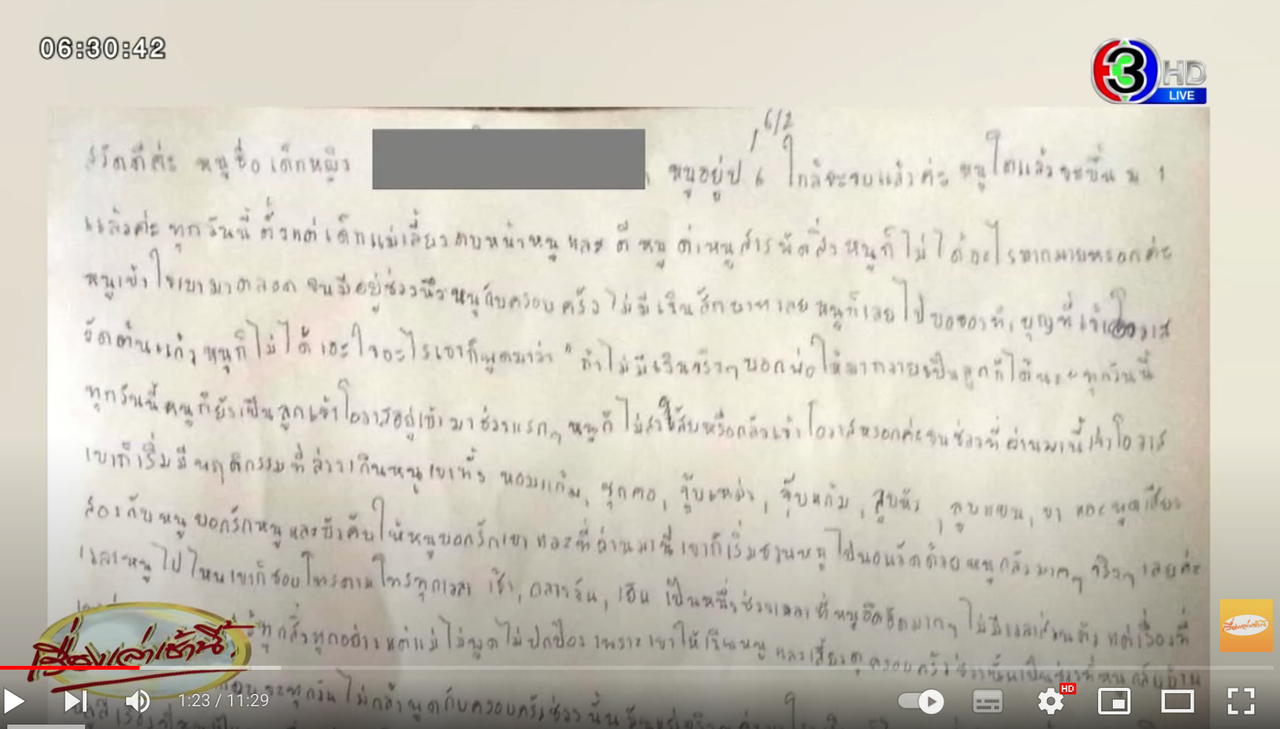 06:30:42
3 HD
LIVE
6/2
สวัสดีค่ะ หนูชื่อ เด็กหญิง หนูอยู่ป 6 ใกล้จะจบแล้วค่ะ หนูโตแล้วจะขึ้น ม 1
แล้วค่ะ ทุกวันนี้ ตั้งแต่เด็กแม่เลี้ยงตบหน้าหนู และ ตี หนู ด่าหนูสารพัดสิ่ง หนูก็ ไม่ ได้ อะไรมากมายหรอกค่ะ
หนูเข้าใจเขามาตลอด จนมีอยู่ช่วงนึงหนูกับครอบครัว ไม่มีเงินสักบาทเลย หนูก็เลย ไป ขอของที่ บุญที่เจ้าโอวาส
วัดต้นแก้ว หนูก็ไม่ได้เอะใจอะไรเขาก็พูดมาว่า " ถ้าไม่มีเงินจริงๆ บอกพ่อให้มาถวายเป็นลูกก็ได้นะ ทุกวันนี้
ทุกวันนี้หนูก็ยังเป็นลูกเจ้าโอวาสอยู่เข้ามาช่วงแรกๆ หนูก็ไม่สงใสัยหรือกลัวเจ้าโอวาสหรอกค่ะจนช่วงที่ผ่านมานี้เจ้าโอวาส
เขาก็เริ่มมีพฤติกรรมที่ล่วงเกินหนู เขาทั้ง หอมแก้ม, ซุกคอ, จุ๊บเหม่ง, จุ๊บแก้ม, ลูบหัว, ลูบแขน, ขา และพูดเสียง
สองกับหนู บอกรักหนู และบังคับให้หนูบอกรักเขา และที่ผ่านมานี้เขาก็เริ่มชวนหนูไปนอนวัดด้วยหนูกลัวมากๆ จริงๆ เลยค่ะ
เวลาหนูไปไหนเขาก็ชอบโทรตามโทรทุกเวลา เช้า, กลางวัน, เย็น เป็นหนึ่งช่วงเวลาที่หนูอึดอัดมากๆ ไม่มีเวลาส่วนตัว แต่เรื่องที่
ทุกสิ่งทุกอย่าง แต่แม่ไม่พูดไม่ปกป้อง เพราะเขาให้เงินหนู และเลี้ยงดูครอบครัว
ทุกวัน ไม่กล้าพูดกับครอบครัวช่วงนั้น
เรื่องเล่าเช้านี้
เรื่องเล่าเช้านี้
1:23 / 11:29
HD